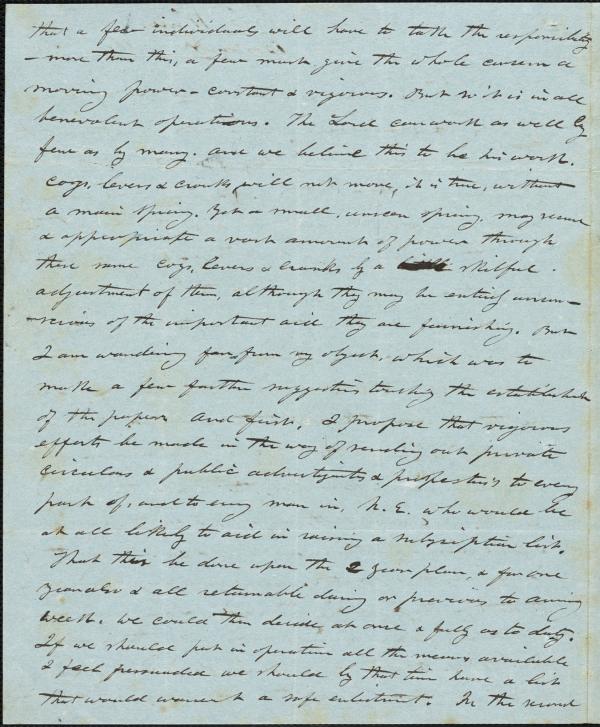 that a few individuals will have to take the responsibility
– more than this, a few must give the whole concern a
moving power – constant & vigorous. But so it is in all
benevolent operations. The Lord can work as well by
few as by many. and we believe this to be his work.
Cogs, levers & cranks, will not move, it is true, without
a main spring. Yet a small, unseen spring, may secure
& appropriate a vast amount of power through
these same cogs, levers & cranks by a skilful
adjustment of them, although they may be entirely uncon-
scious of the important aid they are furnishing. But
I am wandering far from my object, which was to
make a few further suggestions touching the establishm
of the paper. And first, I propose that vigorous
efforts be made in the way of sending out private
circulars & public advertisments & prospectus's to every
part of, and to every man in, N. E. who would be
at all likely to aid in raising a subscription list.
That this be done upon the 2 year plan, & for one
year also & all returnable during or previous to
week. we could then decide, at once & fully as to duty.
If we should put in operation all the means available
I feel persuaded we should by that time have a list
that would warrant a safe enlistment. In the second